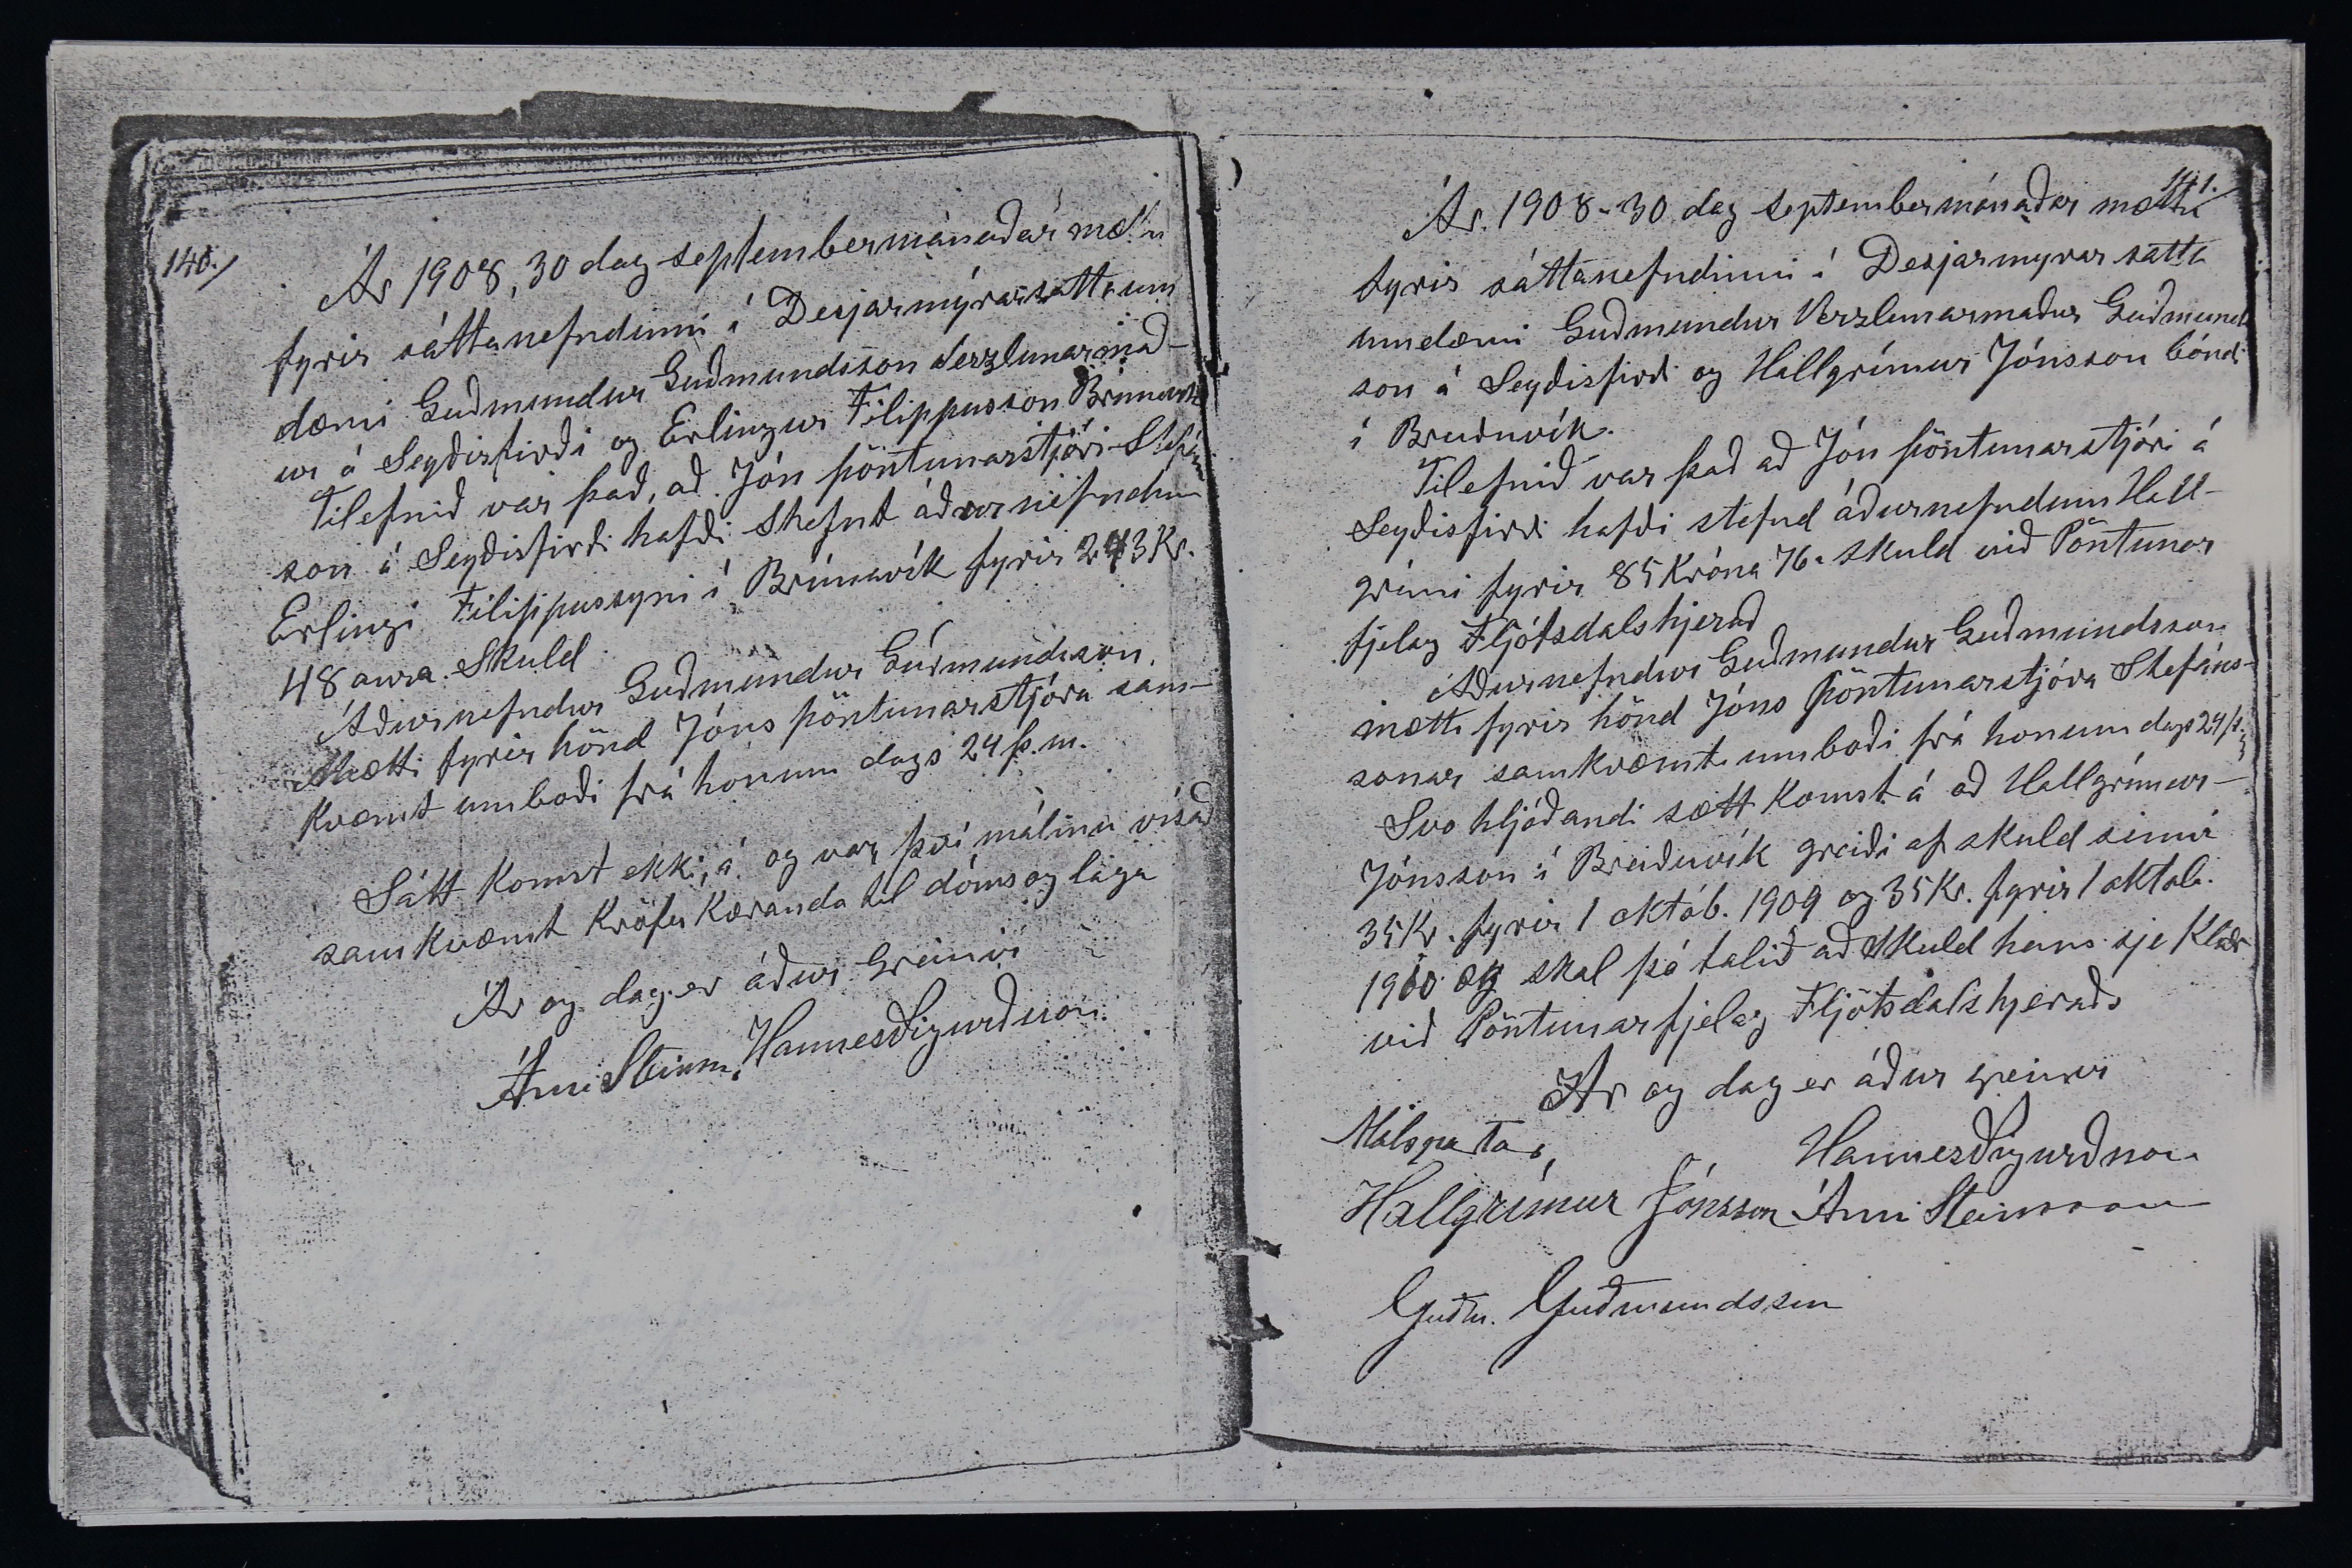 140./
Ár 1908, 30 dag septembermánaðar mættu
fyrir sáttanefndinni í Desjarmýrarsáttaum
dæmi Guðmundur Guðmundsson Verzlunarmað-
ur á Seyðisfirði og Erlingur Filippusson Brúnavík
Tilefnið var það, að Jón pöntunarstjóri Stefáns
son á Seyðisfirði hafði stefnt áðurnefndum
Erlingi Filippussyni í Brúnavík fyrir 243 Kr.
48 aura Skuld
Áðurnefndur Guðmundur Guðmundsson,
Mætti fyrir hönd Jóns pöntunarstjóra sam-
kvæmt umboði frá honum dags 24 þ.m.
Sátt komst ekki, á og var því málinu vísað
samkvæmt Kröfu Kæranda til dóms og laga
Ár og dag er áður Greinir
Árni Steinss, Hannes Sigurðsson.
141.
Ár. 1908 - 30 dag septembermánaðar mættu
fyrir sáttanefndinni í Desjarmýrar sátta
umdæmi Guðmundur Verzlunarmaður Guðmunds
son á Seyðisfirði og Hallgrímur Jónsson bóndi
í Breiðuvík.
Tilefnið var það að Jón pöntunarstjóri á
Seyðisfirði hafði stefnd áðurnefndum Hall-
grími fyrir 85 Króna 76 a skuld við Pöntunar
fjelag Fljótsdalshjerað
Aðurnefndur Guðmundur Guðmundsson
mætti fyrir hönd Jóns pöntunarstjóra Stefáns-
sonar samkvæmt umboði frá honum dags 24 þ.
Svo hljóðandi sætt komst á að Hallgrímur-
Jónsson í Breiðuvík greiði af skuld sinni
35 Kr. fyrir 1 októb. 1909 og 35 Kr. fyrir 1 oktob.
1910. og skal þá talið að skuld hans sje Klár
við Pöntunarfjelag Fljótsdalshjeraðs
Ár og dag er áður greinir
Málspartar,
Hannes Sigurðsson
Hallgrímur Jónsson Árni Steinsson
Guðm. Guðmundsson